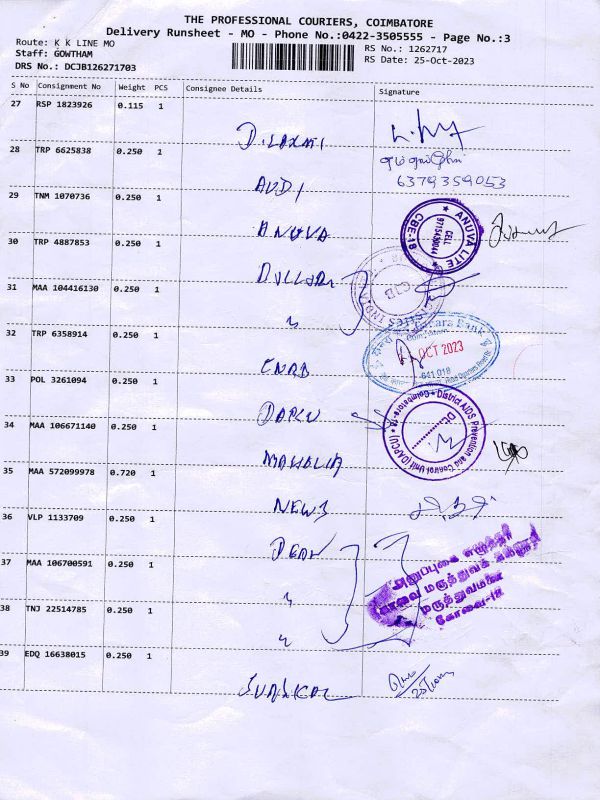 THE PROFESSIONAL COURIERS, COIMBATORE
Delivery Runsheet - MO - Phone No.:0422-3505555 - Page No.:3
Route: K K LINE MO
RS No.: 1262717
Staff: GOWTHAM
RS Date: 25-Oct-2023
DRS No.: DCJB126271703
S No Consignment No Weight PCS Consignee Details Signature
27 RSP 1823926 0.115 1
D.LAXMI
28 TRP 6625838 0.250 1
6379359053
AUDI
29 TNM 1070736 0.250 1
ANUVA
ANUVA LITE
CELL
9715439044
CBE-18
30 TRP 4887853 0.250 1
31 MAA 104416130 0.250 1
"
32 TRP 6358914 0.250 1
Bank
OCT 2023
641 018
CNRB
33 POL 3261094 0.250 1
DAPCU
District AIDS Prevention and Control Unit (DAPCU) Coimbatore-18
34 MAA 106671140 0.250 1
35 MAA 572099978 0.720 1
36 VLP 1133709 0.250 1
DEAN
அனுப்புகை எழுத்தர்
கோவை மருத்துவக் கல்லூரி
மருத்துவமனை
கோவை-18
37 MAA 106700591 0.250 1
"
38 TNJ 22514785 0.250 1
"
39 EDQ 16638015 0.250 1